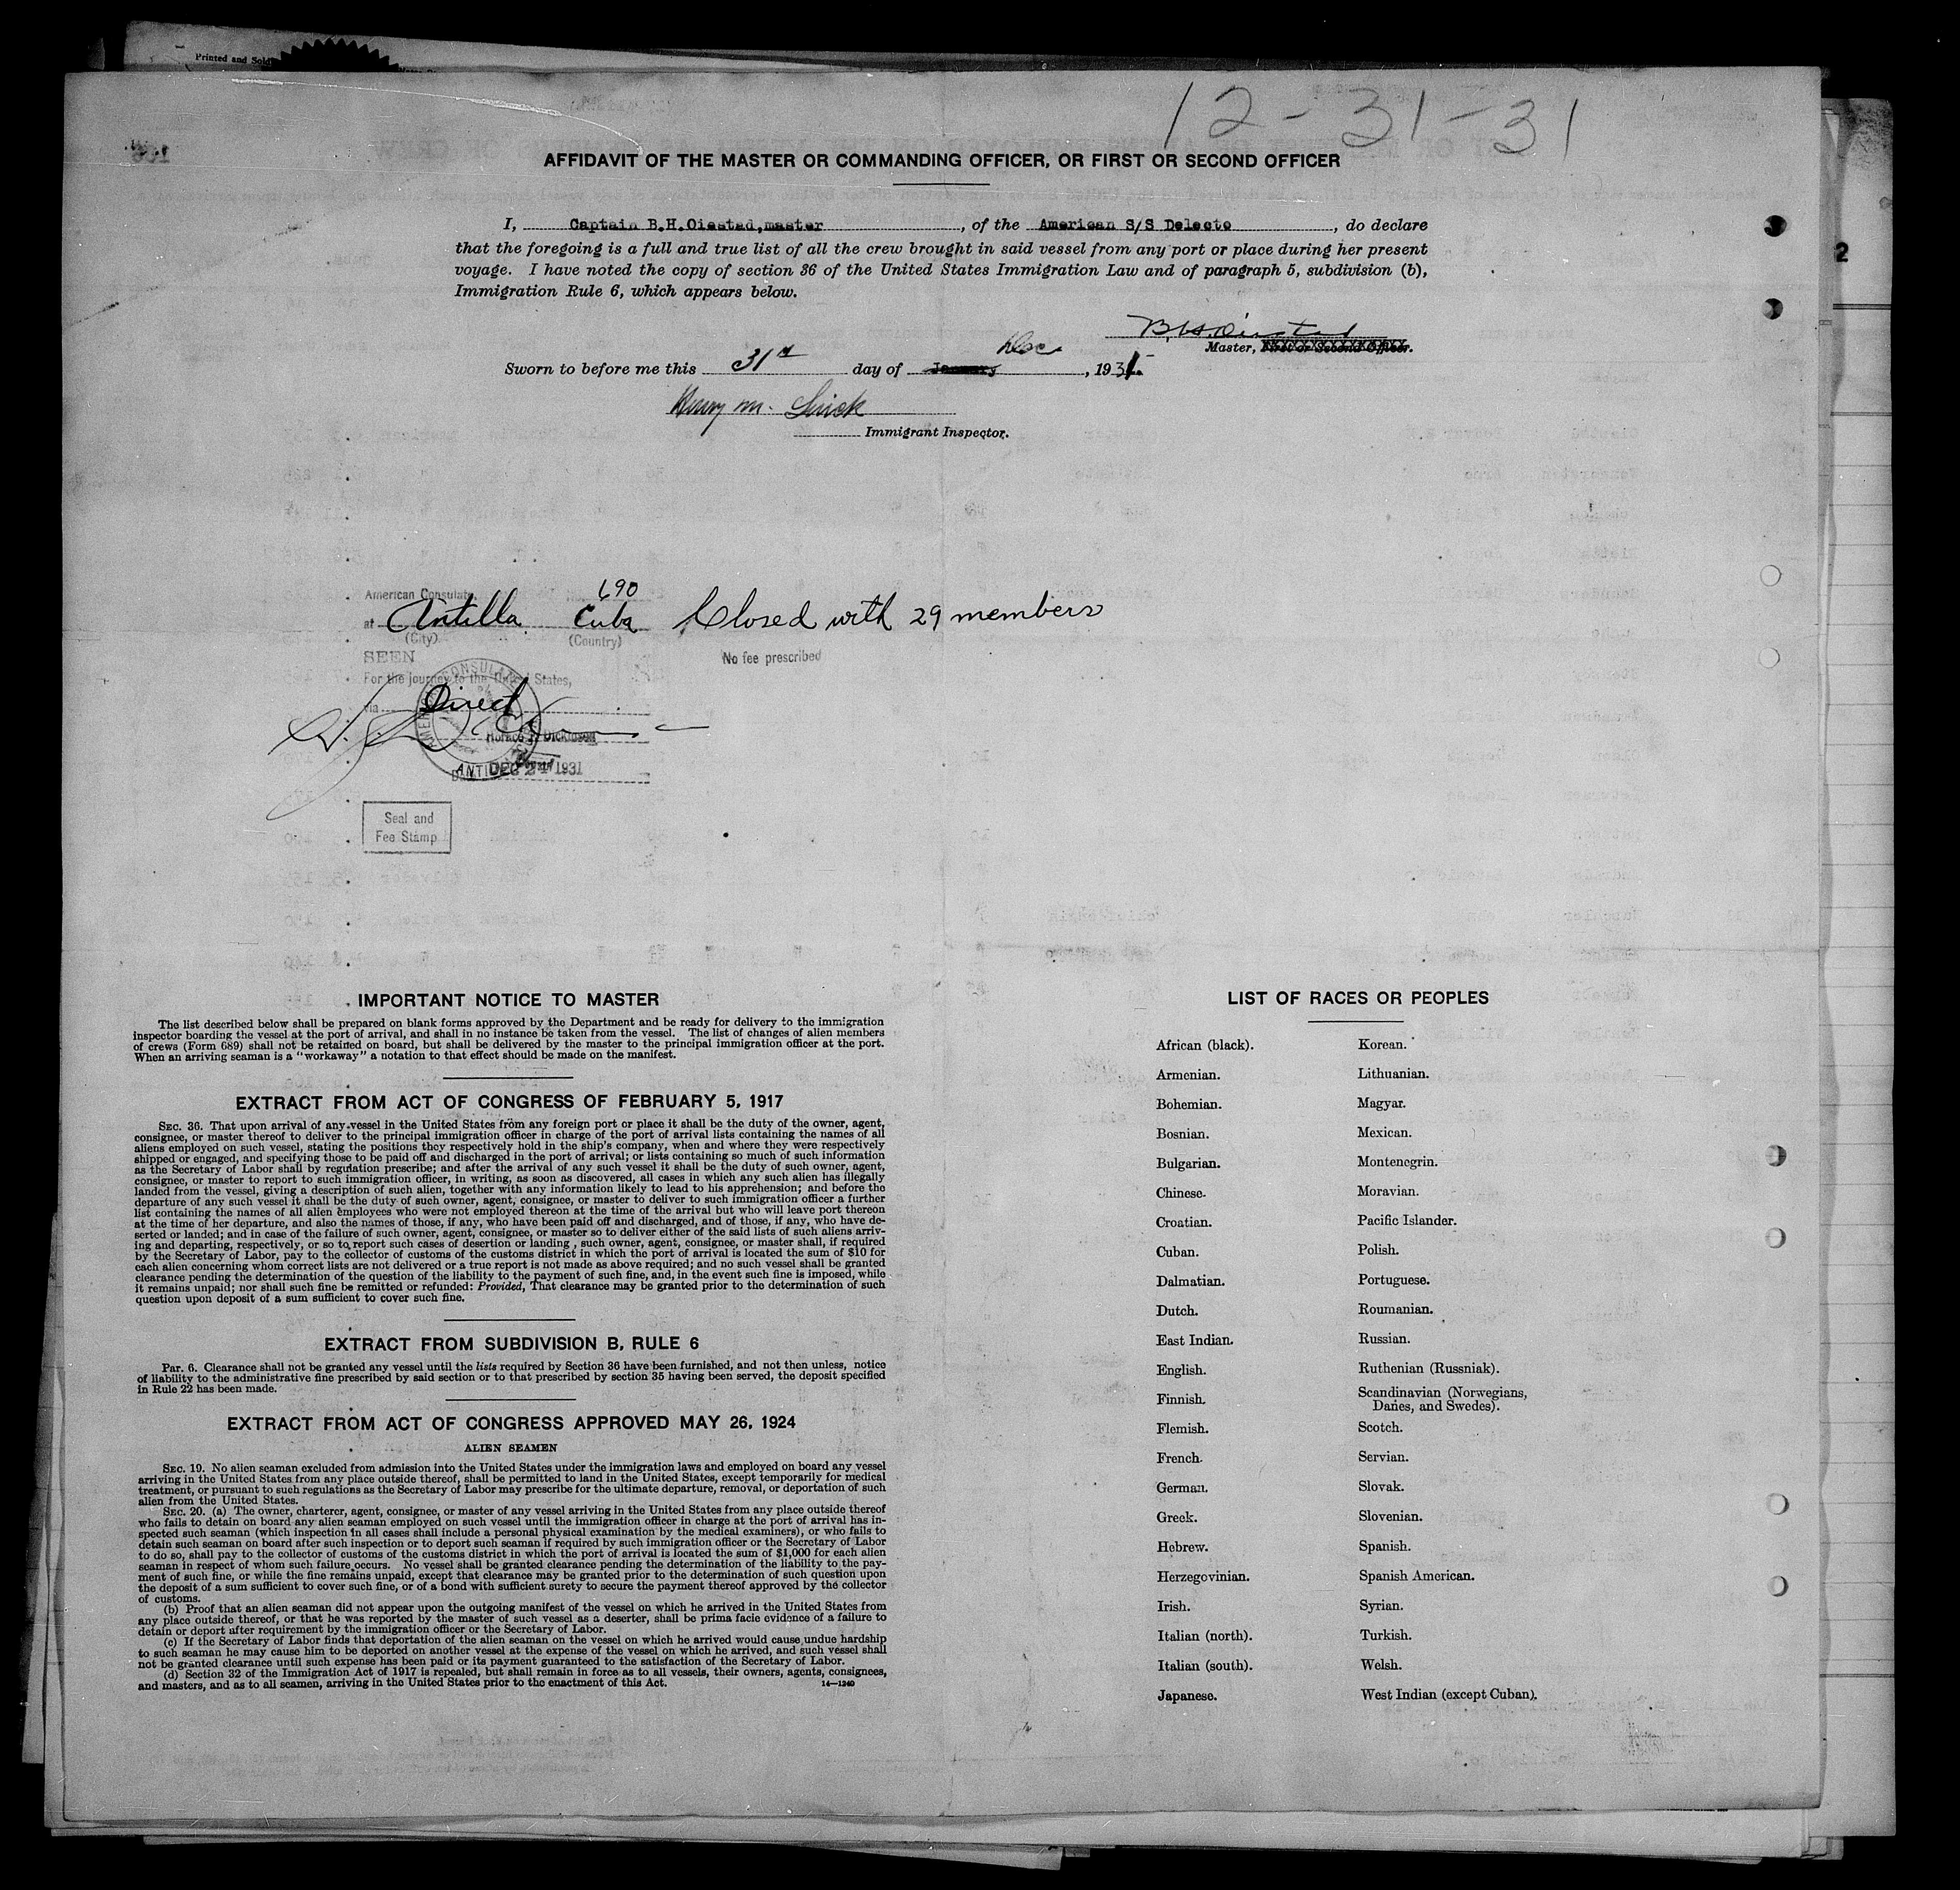 Printed and Sold
12-31-31
AFFIDAVIT OF THE MASTER OR COMMANDING OFFICER, OR FIRST OR SECOND OFFICER
I, Captain B.H.Oiestad,master, of the American S/S Delecto, do declare
that the foregoing is a full and true list of all the crew brought in said vessel from any port or place during her present
voyage. I have noted the copy of section 36 of the United States Immigration Law and of paragraph 5, subdivision (b),
Immigration Rule 6, which appears below.
B.H.Oiestad
Master, First or Second Officer.
Dec
Sworn to before me this 31st day of January, 1931.
Henry M.
Immigrant Inspector.
690
American Consulate,
at Antilla Cuba Closed with 29 members
(City) (Country)
SEEN No fee prescribed
For the journey to the United States,
via Direct
Horace J. Dickinson
DEC 24 1931
Seal and
Fee Stamp
IMPORTANT NOTICE TO MASTER
The list described below shall be prepared on blank forms approved by the Department and be ready for delivery to the immigration
inspector boarding the vessel at the port of arrival, and shall in no instance be taken from the vessel. The list of changes of alien members
of crews (Form 689) shall not be retained on board, but shall be delivered by the master to the principal immigration officer at the port.
When an arriving seaman is a "workaway" a notation to that effect should be made on the manifest.
EXTRACT FROM ACT OF CONGRESS OF FEBRUARY 5, 1917
SEC. 36. That upon arrival of any vessel in the United States from any foreign port or place it shall be the duty of the owner, agent,
consignee, or master thereof to deliver to the principal immigration officer in charge of the port of arrival lists containing the names of all
aliens employed on such vessel, stating the positions they respectively hold in the ship's company, when and where they were respectively
shipped or engaged, and specifying those to be paid off and discharged in the port of arrival; or lists containing so much of such information
as the Secretary of Labor shall by regulation prescribe; and after the arrival of any such vessel it shall be the duty of such owner, agent,
consignee, or master to report to such immigration officer, in writing, as soon as discovered, all cases in which any such alien has illegally
landed from the vessel, giving a description of such alien, together with any information likely to lead to his apprehension; and before the
departure of any such vessel it shall be the duty of such owner, agent, consignee, or master to deliver to such immigration officer a further
list containing the names of all alien employees who were not employed thereon at the time of the arrival but who will leave port thereon
at the time of her departure, and also the names of those, if any, who have been paid off and discharged, and of those, if any, who have de-
serted or landed; and in case of the failure of such owner, agent, consignee, or master so to deliver either of the said lists of such aliens arriv-
ing and departing, respectively, or so to report such cases of desertion or landing, such owner, agent, consignee, or master shall, if required
by the Secretary of Labor, pay to the collector of customs of the customs district in which the port of arrival is located the sum of $10 for
each alien concerning whom correct lists are not delivered or a true report is not made as above required; and no such vessel shall be granted
clearance pending the determination of the question of the liability to the payment of such fine, and, in the event such fine is imposed, while
it remains unpaid; nor shall such fine be remitted or refunded: Provided, That clearance may be granted prior to the determination of such
question upon deposit of a sum sufficient to cover such fine.
EXTRACT FROM SUBDIVISION B, RULE 6
Par. 6. Clearance shall not be granted any vessel until the lists required by Section 36 have been furnished, and not then unless, notice
of liability to the administrative fine prescribed by said section or to that prescribed by section 35 having been served, the deposit specified
in Rule 22 has been made.
EXTRACT FROM ACT OF CONGRESS APPROVED MAY 26, 1924
ALIEN SEAMEN
SEC. 19. No alien seaman excluded from admission into the United States under the immigration laws and employed on board any vessel
arriving in the United States from any place outside thereof, shall be permitted to land in the United States, except temporarily for medical
treatment, or pursuant to such regulations as the Secretary of Labor may prescribe for the ultimate departure, removal, or deportation of such
alien from the United States.
SEC. 20. (a) The owner, charterer, agent, consignee, or master of any vessel arriving in the United States from any place outside thereof
who fails to detain on board any alien seaman employed on such vessel until the immigration officer in charge at the port of arrival has in-
spected such seaman (which inspection in all cases shall include a personal physical examination by the medical examiners), or who fails to
detain such seaman on board after such inspection or to deport such seaman if required by such immigration officer or the Secretary of Labor
to do so, shall pay to the collector of customs of the customs district in which the port of arrival is located the sum of $1,000 for each alien
seaman in respect of whom such failure occurs. No vessel shall be granted clearance pending the determination of the liability to the pay-
ment of such fine, or while the fine remains unpaid, except that clearance may be granted prior to the determination of such question upon
the deposit of a sum sufficient to cover such fine, or of a bond with sufficient surety to secure the payment thereof approved by the collector
of customs.
(b) Proof that an alien seaman did not appear upon the outgoing manifest of the vessel on which he arrived in the United States from
any place outside thereof, or that he was reported by the master of such vessel as a deserter, shall be prima facie evidence of a failure to
detain or deport after requirement by the immigration officer or the Secretary of Labor.
(c) If the Secretary of Labor finds that deportation of the alien seaman on the vessel on which he arrived would cause undue hardship
to such seaman he may cause him to be deported on another vessel at the expense of the vessel on which he arrived, and such vessel shall
not be granted clearance until such expense has been paid or its payment guaranteed to the satisfaction of the Secretary of Labor.
(d) Section 32 of the Immigration Act of 1917 is repealed, but shall remain in force as to all vessels, their owners, agents, consignees,
and masters, and as to all seamen, arriving in the United States prior to the enactment of this Act. 14—1240
LIST OF RACES OR PEOPLES
African (black). Korean.
Armenian. Lithuanian.
Bohemian. Magyar.
Bosnian. Mexican.
Bulgarian. Montenegrin.
Chinese. Moravian.
Croatian. Pacific Islander.
Cuban. Polish.
Dalmatian. Portuguese.
Dutch. Roumanian.
East Indian. Russian.
English. Ruthenian (Russniak).
Finnish. Scandinavian (Norwegians,
Danes, and Swedes).
Flemish. Scotch.
French. Servian.
German. Slovak.
Greek. Slovenian.
Hebrew. Spanish.
Herzegovinian. Spanish American.
Irish. Syrian.
Italian (north). Turkish.
Italian (south). Welsh.
Japanese. West Indian (except Cuban).
2